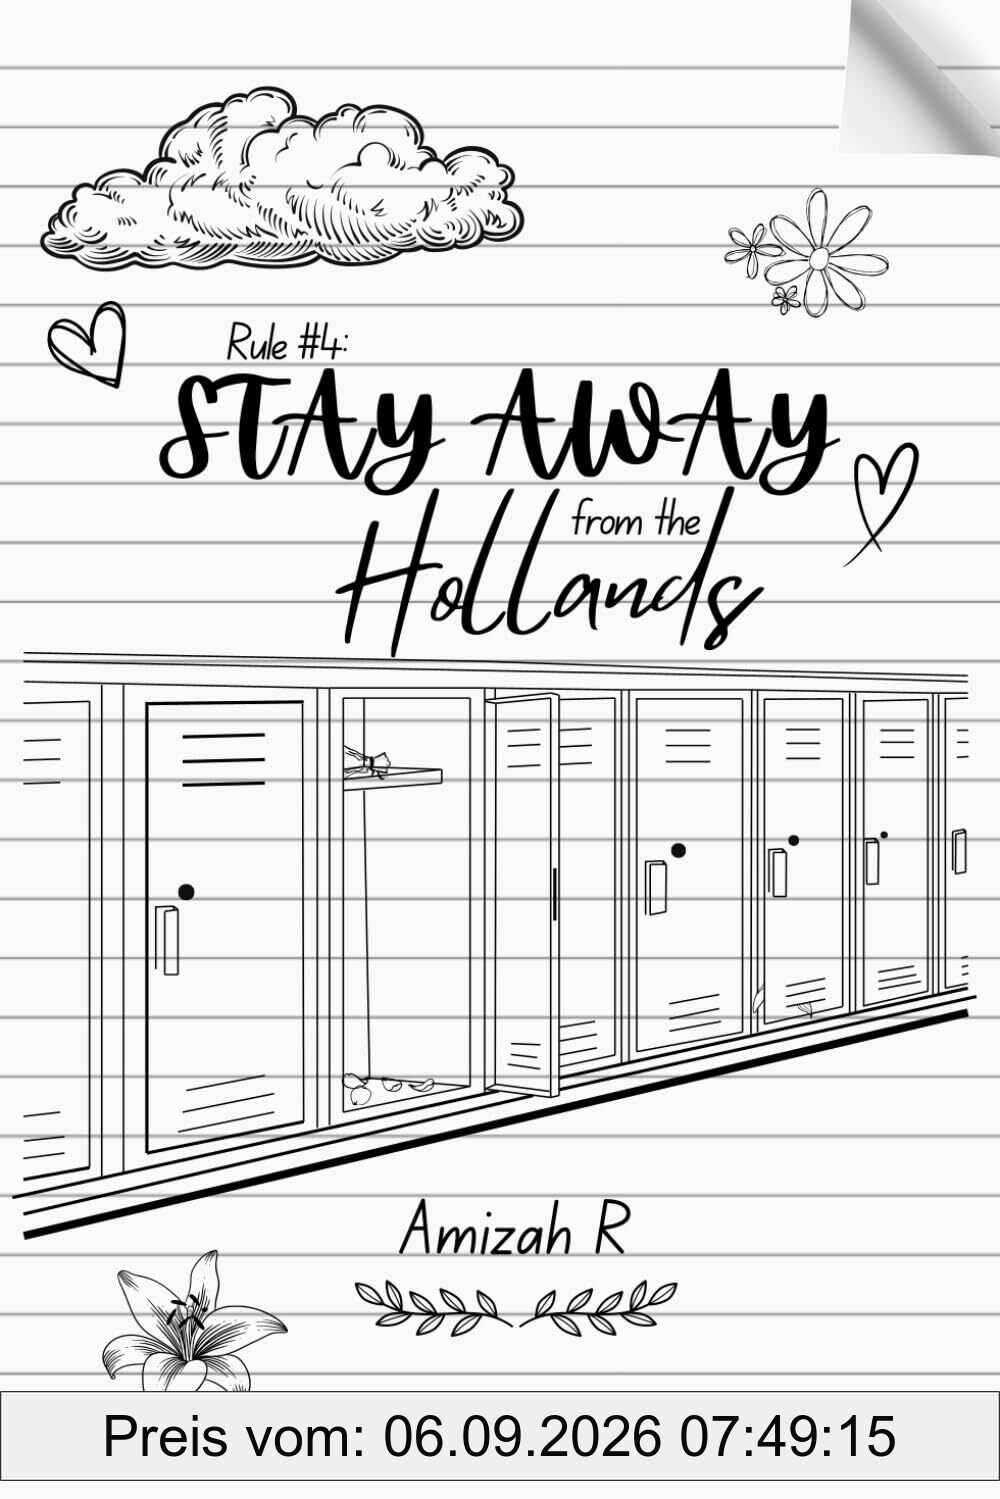 Rule #4:
STAY AWAY
from the
Hollands
Amizah R
Preis vom: 06.09.2026 07:49:15